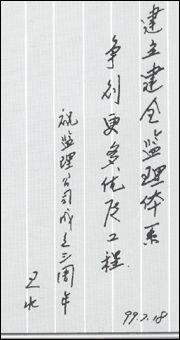 建立建全监理体系
争创更多优质工程
祝监理公司成立三周年
99.7.18